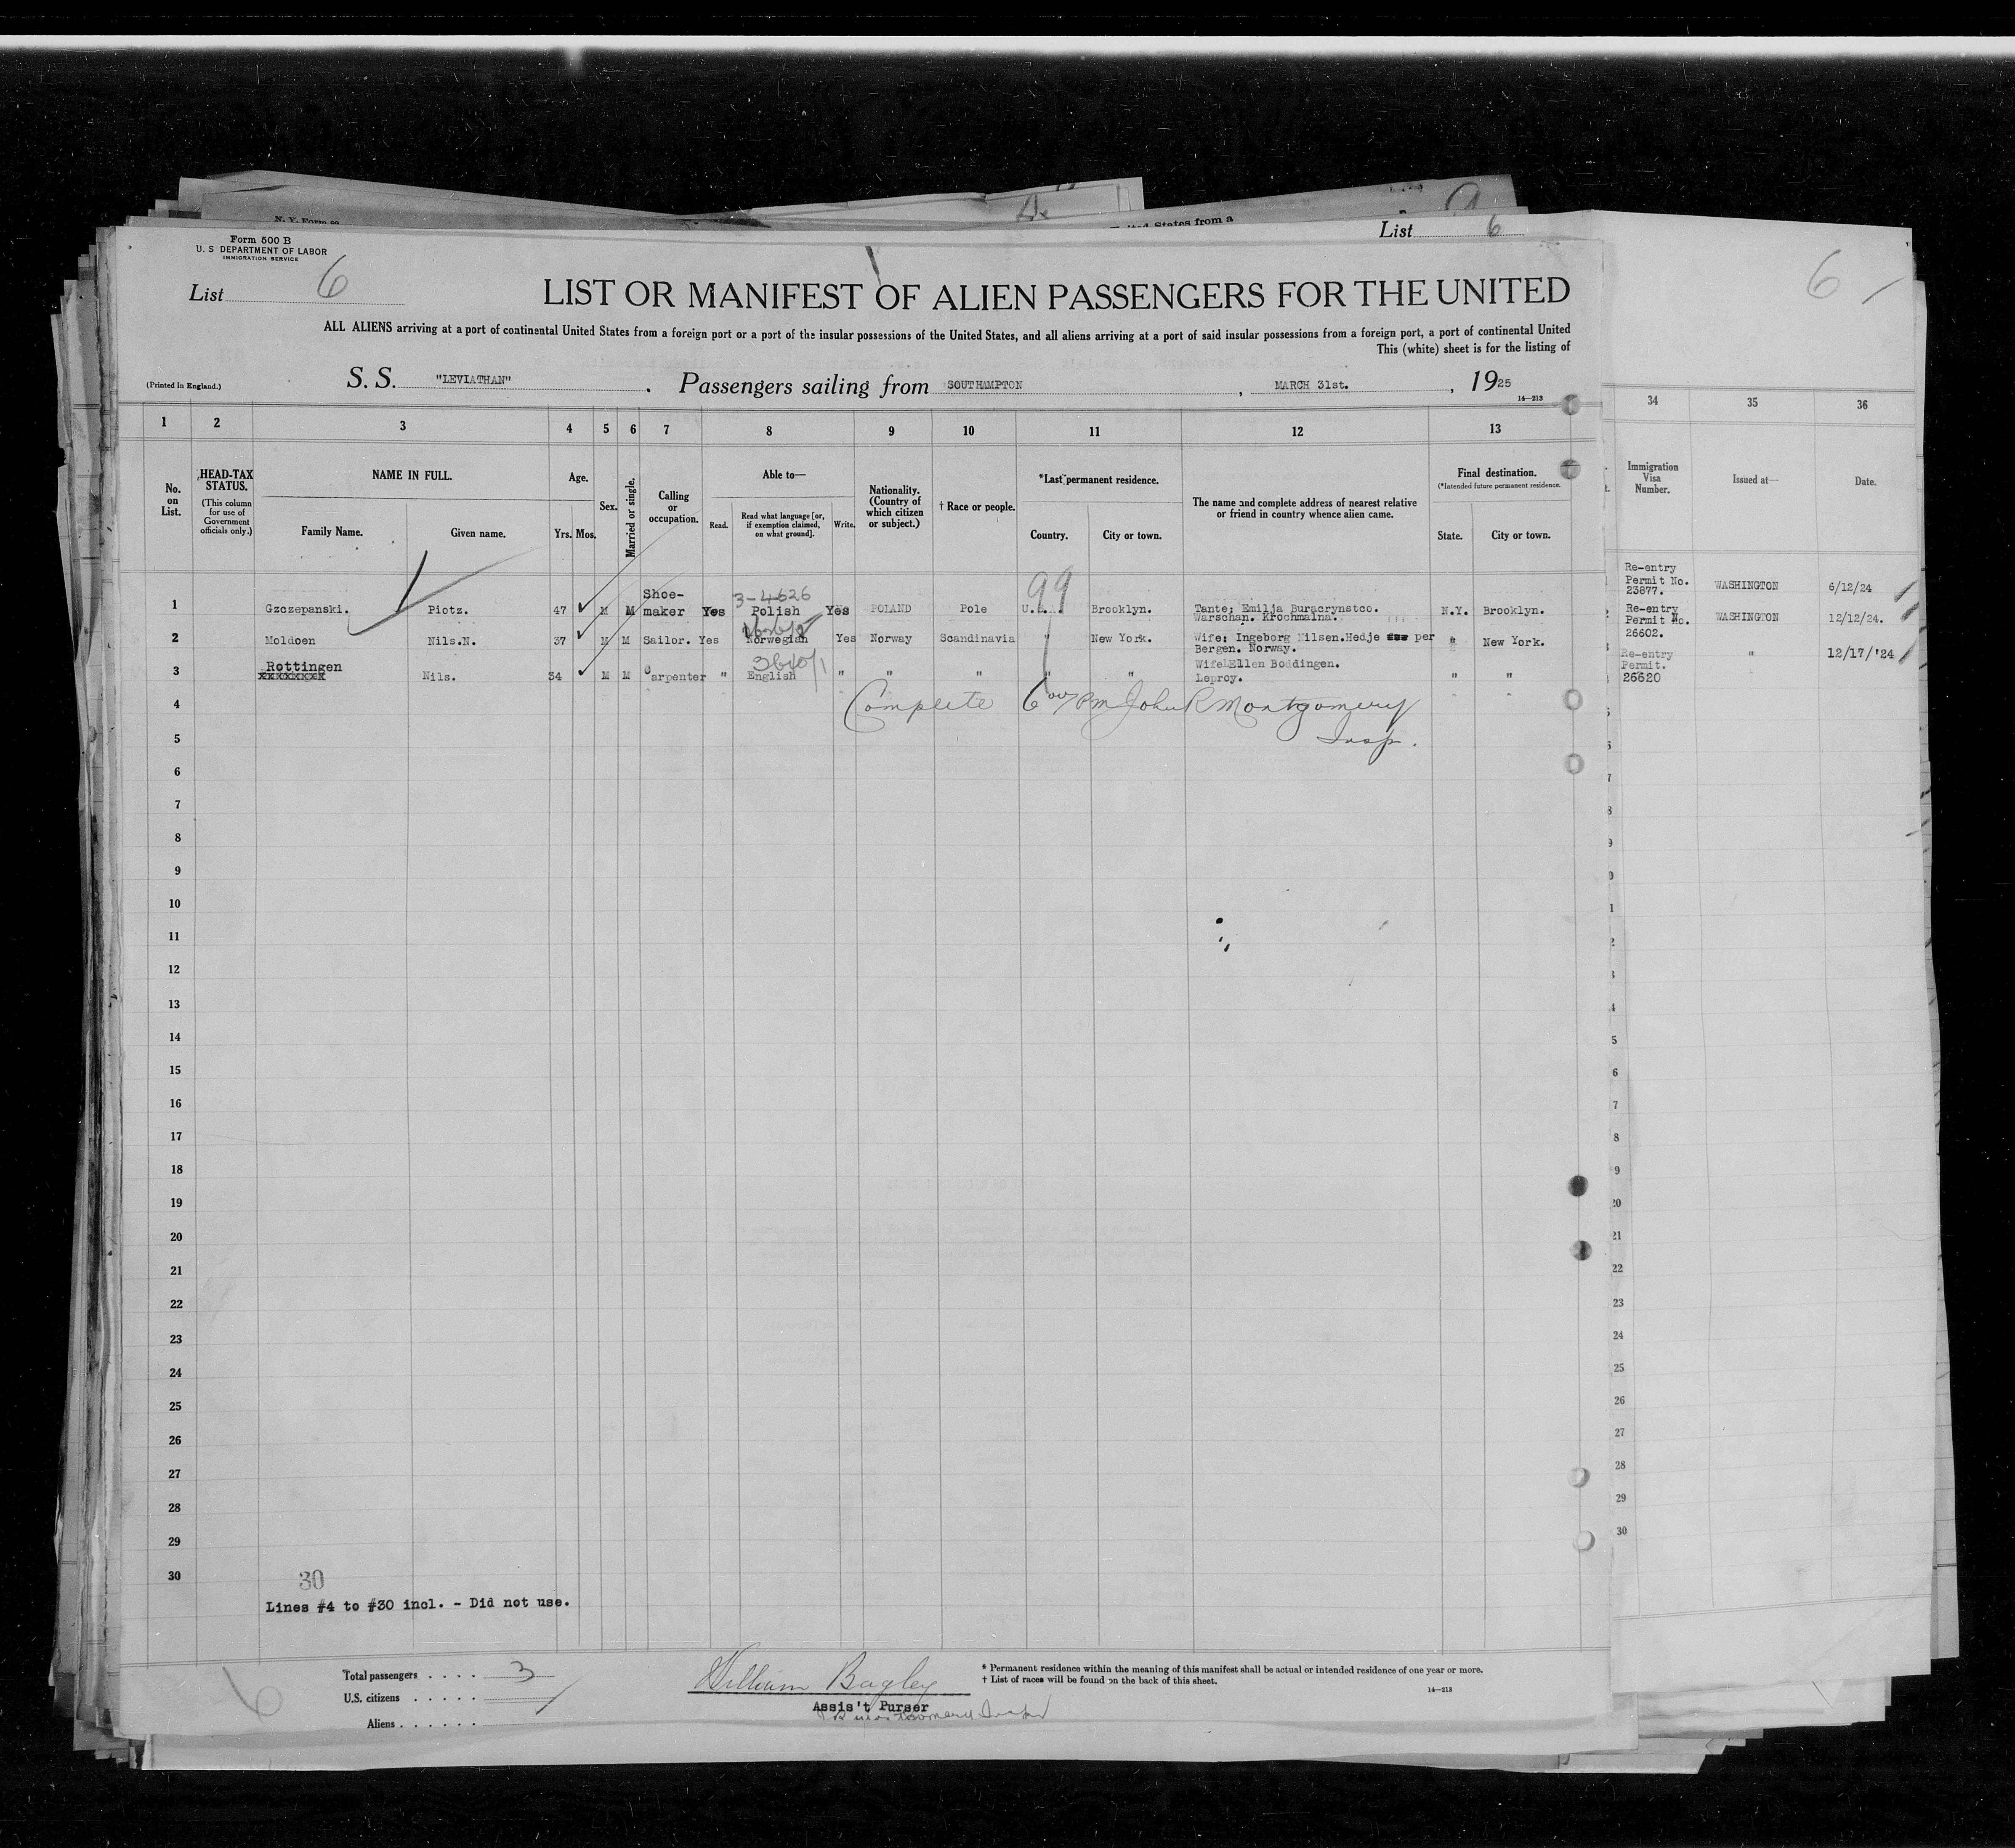 N. Y. Form
United States from a
List 6
Form 500 B
U. S DEPARTMENT OF LABOR
IMMIGRATION SERVICE
List 6
LIST OR MANIFEST OF ALIEN PASSENGERS FOR THE UNITED
ALL ALIENS arriving at a port of continental United States from a foreign port or a port of the insular possessions of the United States, and all aliens arriving at a port of said insular possessions from a foreign port, a port of continental United
This (white) sheet is for the listing of
(Printed in England.)
S. S. "LEVIATHAN" . Passengers sailing from SOUTHAMPTON , MARCH 31st. , 1925
14—213
6
1 2 3 4 5 6 7 8 9 10 11 12 13 34 35 36
No. on List.
HEAD-TAX STATUS.
(This column for use of Government officials only.)
NAME IN FULL.
Family Name. Given name.
Age.
Yrs. Mos.
Sex.
Married or single.
Calling or occupation.
Able to—
Read. Read what language [or, if exemption claimed, on what ground]. Write.
Nationality. (Country of which citizen or subject.)
† Race or people.
*Last permanent residence.
Country. City or town.
The name and complete address of nearest relative or friend in country whence alien came.
Final destination.
(*Intended future permanent residence.
State. City or town.
Immigration Visa Number.
Issued at—
Date.
99
3-4626
1 Gzczepanski. Piotz. 47 M M Shoe-maker Yes Polish Yes POLAND Pole U.S. Brooklyn. Tante; Emilja Buracrynstco. Warschan. Krochmalna. N.Y. Brooklyn. Re-entry Permit No. 23877. WASHINGTON 6/12/24
2 Moldoen Nils.N. 37 M M Sailor. Yes Norwegian Yes Norway Scandinavia " New York. Wife: Ingeborg Nilsen.Hedje per Bergen. Norway. " New York. Re-entry Permit No. 26602. WASHINGTON 12/12/24.
3 Rottingen xxxxxxxx Nils. 34 M M Carpenter " English " " " " " Wife Ellen Boddingen. Leproy. " " Re-entry Permit. 26620 " 12/17/'24
4 Complete 6 00 PM John R Montgomery
5 Insp.
6
7
8
9
10
11
12
13
14
15
16
17
18
19
20
21
22
23
24
25
26
27
28
29
30
30
Lines #4 to #30 incl. - Did not use.
6
Total passengers . . . . 3
U.S. citizens . . . . .
Aliens . . . . . .
William Bagley
Assis't Purser
* Permanent residence within the meaning of this manifest shall be actual or intended residence of one year or more.
† List of races will be found on the back of this sheet.
14—213